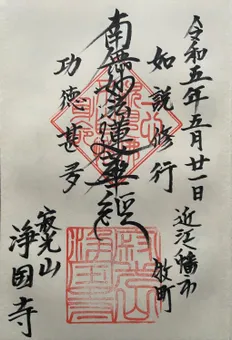 令和五年五月廿一日
近江八幡市
牧町
如説修行
南無妙法蓮華経
功徳甚多
寂光山
浄国寺